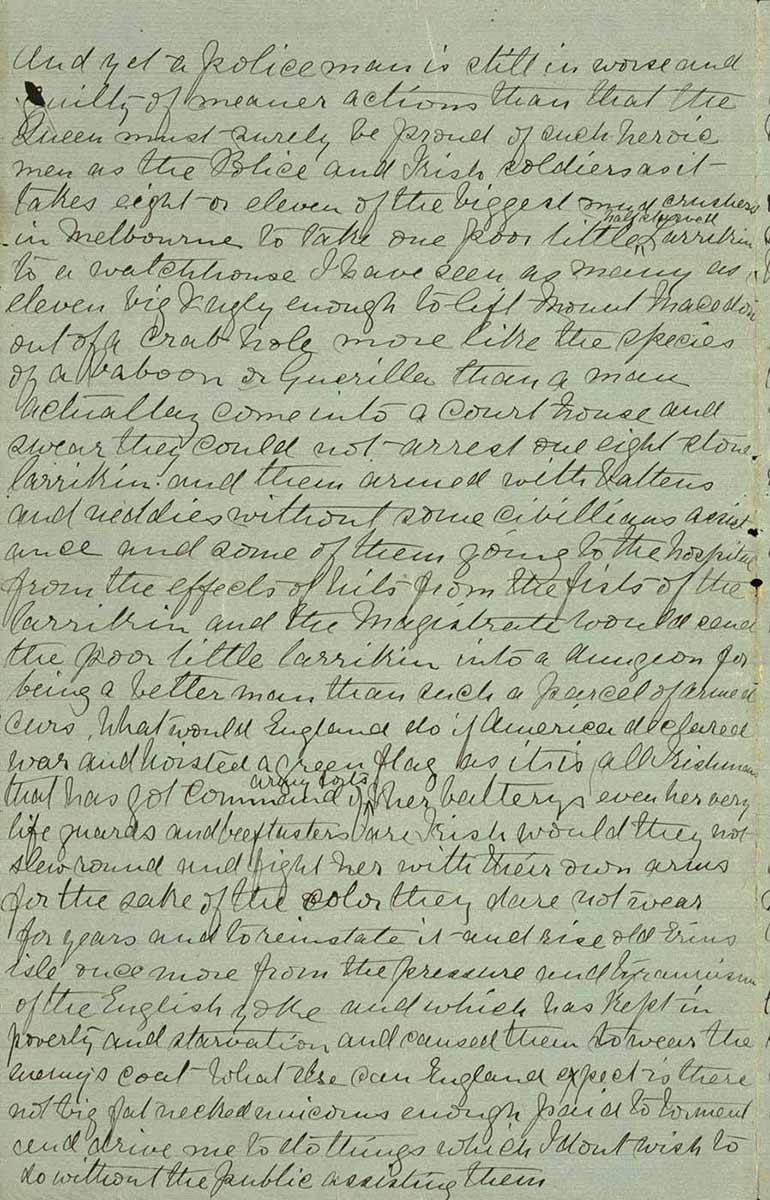 And yet a police man is still in worse and
guilty of meaner actions than that the
Queen must surely be proud of such heroic
men as the Police and Irish soldiers as it
takes eight or eleven of the biggest mud crushers
in Melbourne to take one poor little half starved Larrikin
to a watchhouse I have seen as many as
eleven big & ugly enough to lift Mount Macedon
out of a crab hole more like the species
of a baboon or Guerilla than a man
actually come into a court house and
swear they could not arrest one eight stone
larrikin and them armed with battens
and neddies without some civilians assist
ance and some of them going to the hospital
from the effects of hits from the fists of the
larrikin and the Magistrate would send
the poor little larrikin into a dungeon for
being a better man than such a parcel of armed
curs. What would England do if America declared
war and hoisted a green flag as it is all Irishmen
that has got command of her army forts batterys even her very
life guards and beef tasters are Irish would they not
slew round and fight her with their own arms
for the sake of the color they dare not wear
for years and to reinstate it and rise old Erins
isle once more from the pressure and tyrannism
of the English yoke and which has kept in
poverty and starvation and caused them to wear the
enemy's coat What else can England expect is there
not big fat necked unicorns enough paid to torment
and drive me to do things which I dont wish to
do without the public assisting them